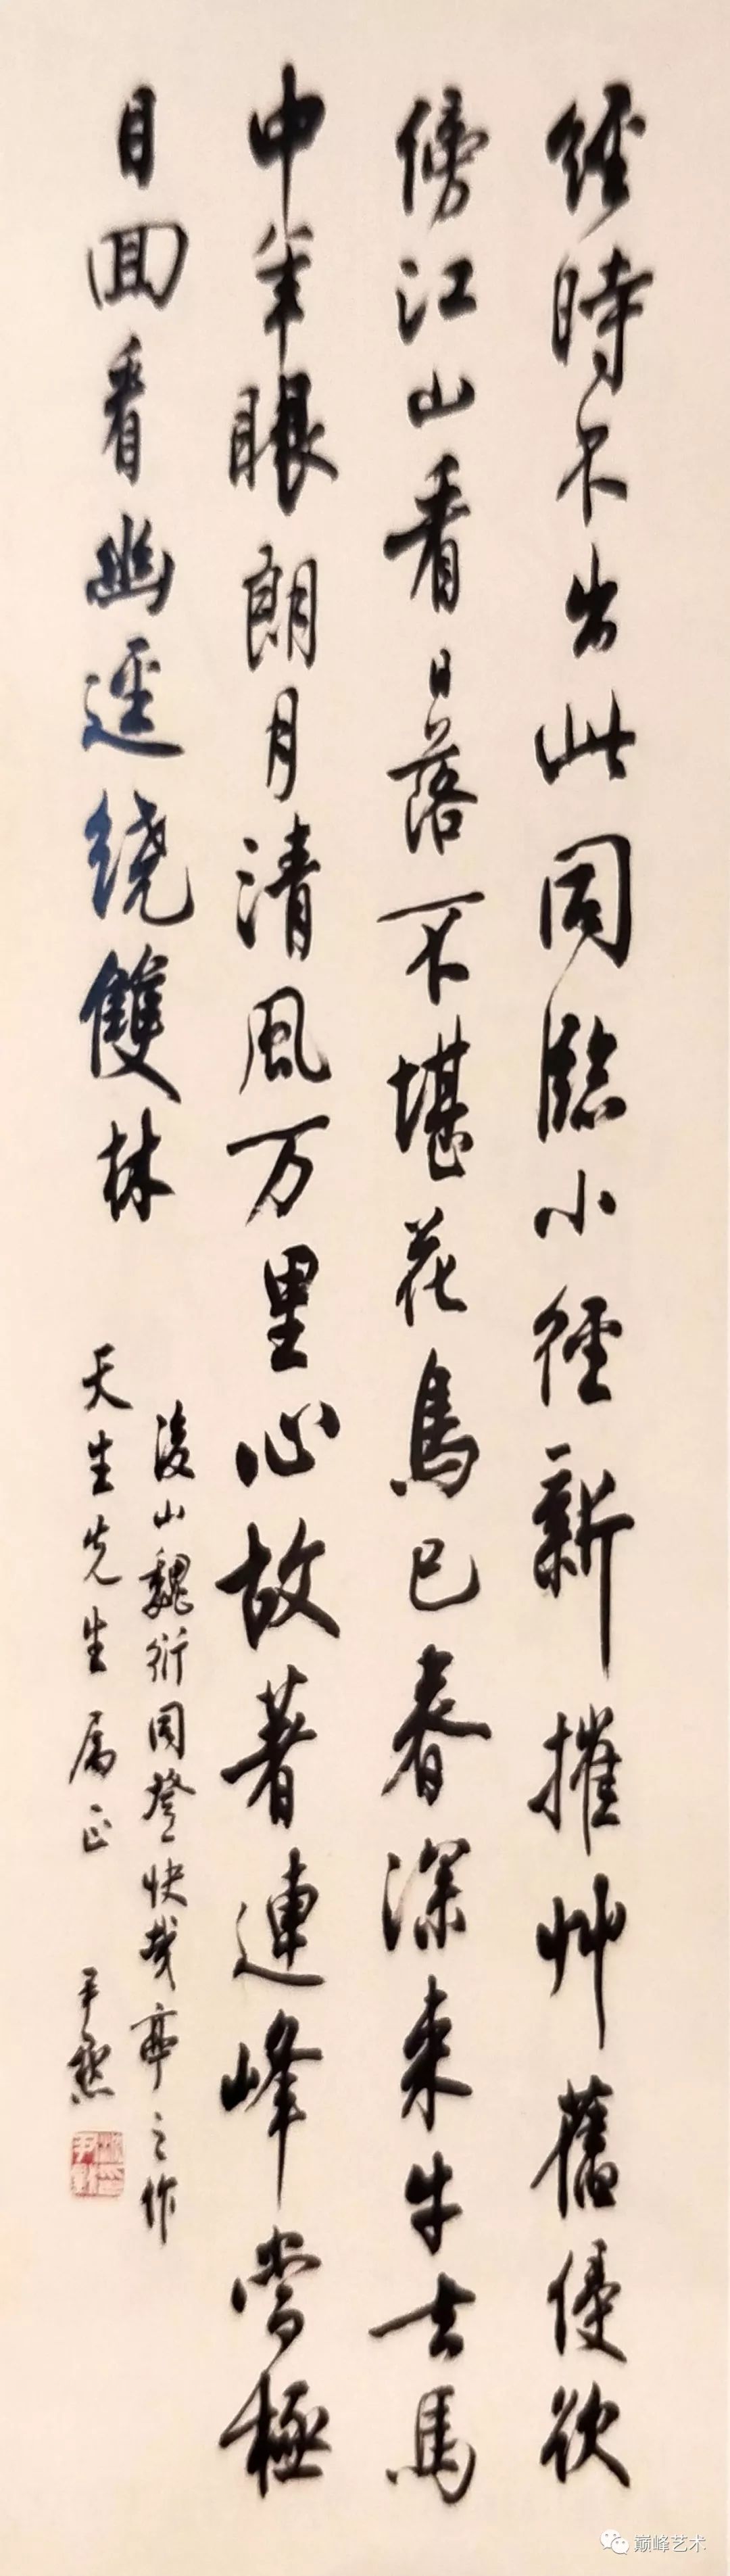 經時不出此同臨小徑新摧艸舊侵欲
傍江山看日落不堪花鳥已春深来牛去馬
中年眼朗月清風万里心故著連峰當極
目回看幽逕繞雙林
後山魏衍同登快哉亭之作
天生先生属正
尹默
巅峰艺术